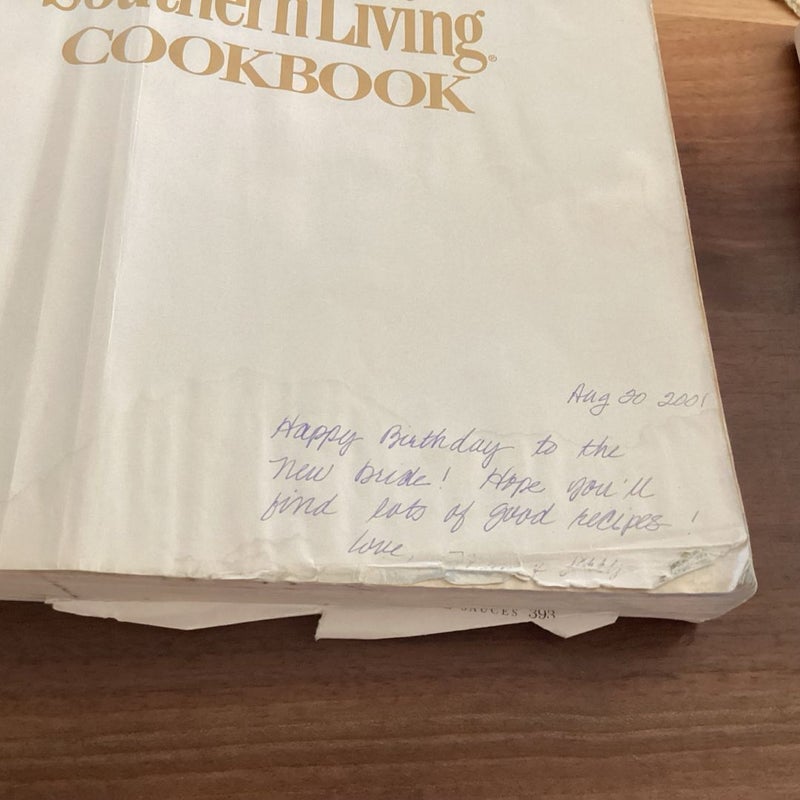 Southern Living®
COOKBOOK
Aug 20 2001
Happy Birthday to the
new bride! Hope you'll
find lots of good recipes!
love,
SAUCES 393